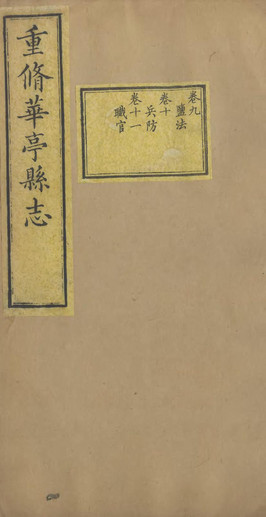 重脩華亭縣志
卷九
鹽法
卷十
兵防
卷十一
職官